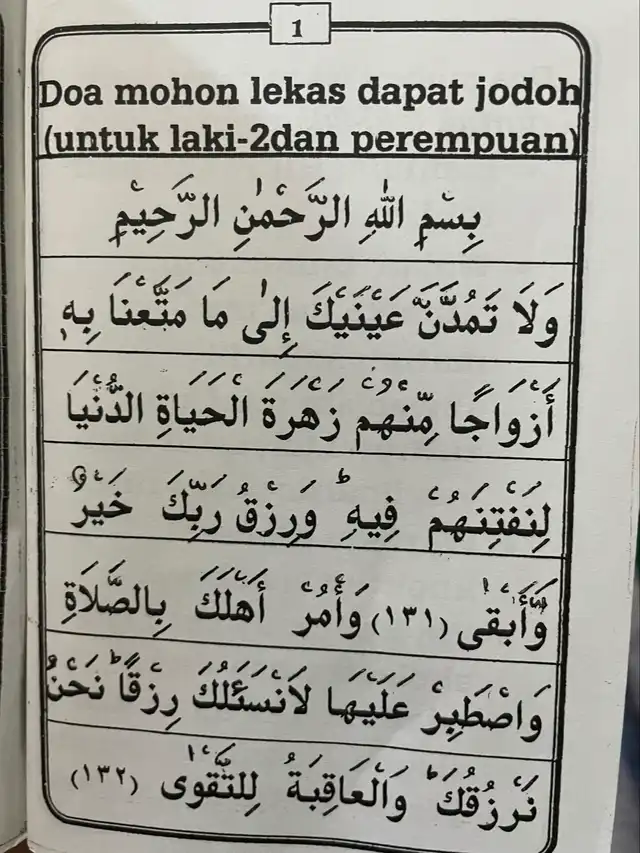 1
Doa mohon lekas dapat jodoh
(untuk laki-2dan perempuan)
بِسْمِ اللهِ الرَّحْمٰنِ الرَّحِيْمِ
وَلَا تَمُدَّنَّ عَيْنَيْكَ إِلٰى مَا مَتَّعْنَا بِهٖ
أَزْوَاجًا مِّنْهُمْ زَهْرَةَ الْحَيَاةِ الدُّنْيَا
لِنَفْتِنَهُمْ فِيهِ ۗ وَرِزْقُ رَبِّكَ خَيْرٌ
وَّأَبْقٰى (١٣١) وَأْمُرْ أَهْلَكَ بِالصَّلَاةِ
وَاصْطَبِرْ عَلَيْهَا لَانَسْئَلُكَ رِزْقًا ۗ نَحْنُ
نَرْزُقُكَ ۗ وَالْعَاقِبَةُ لِلتَّقْوٰى (١٣٢)